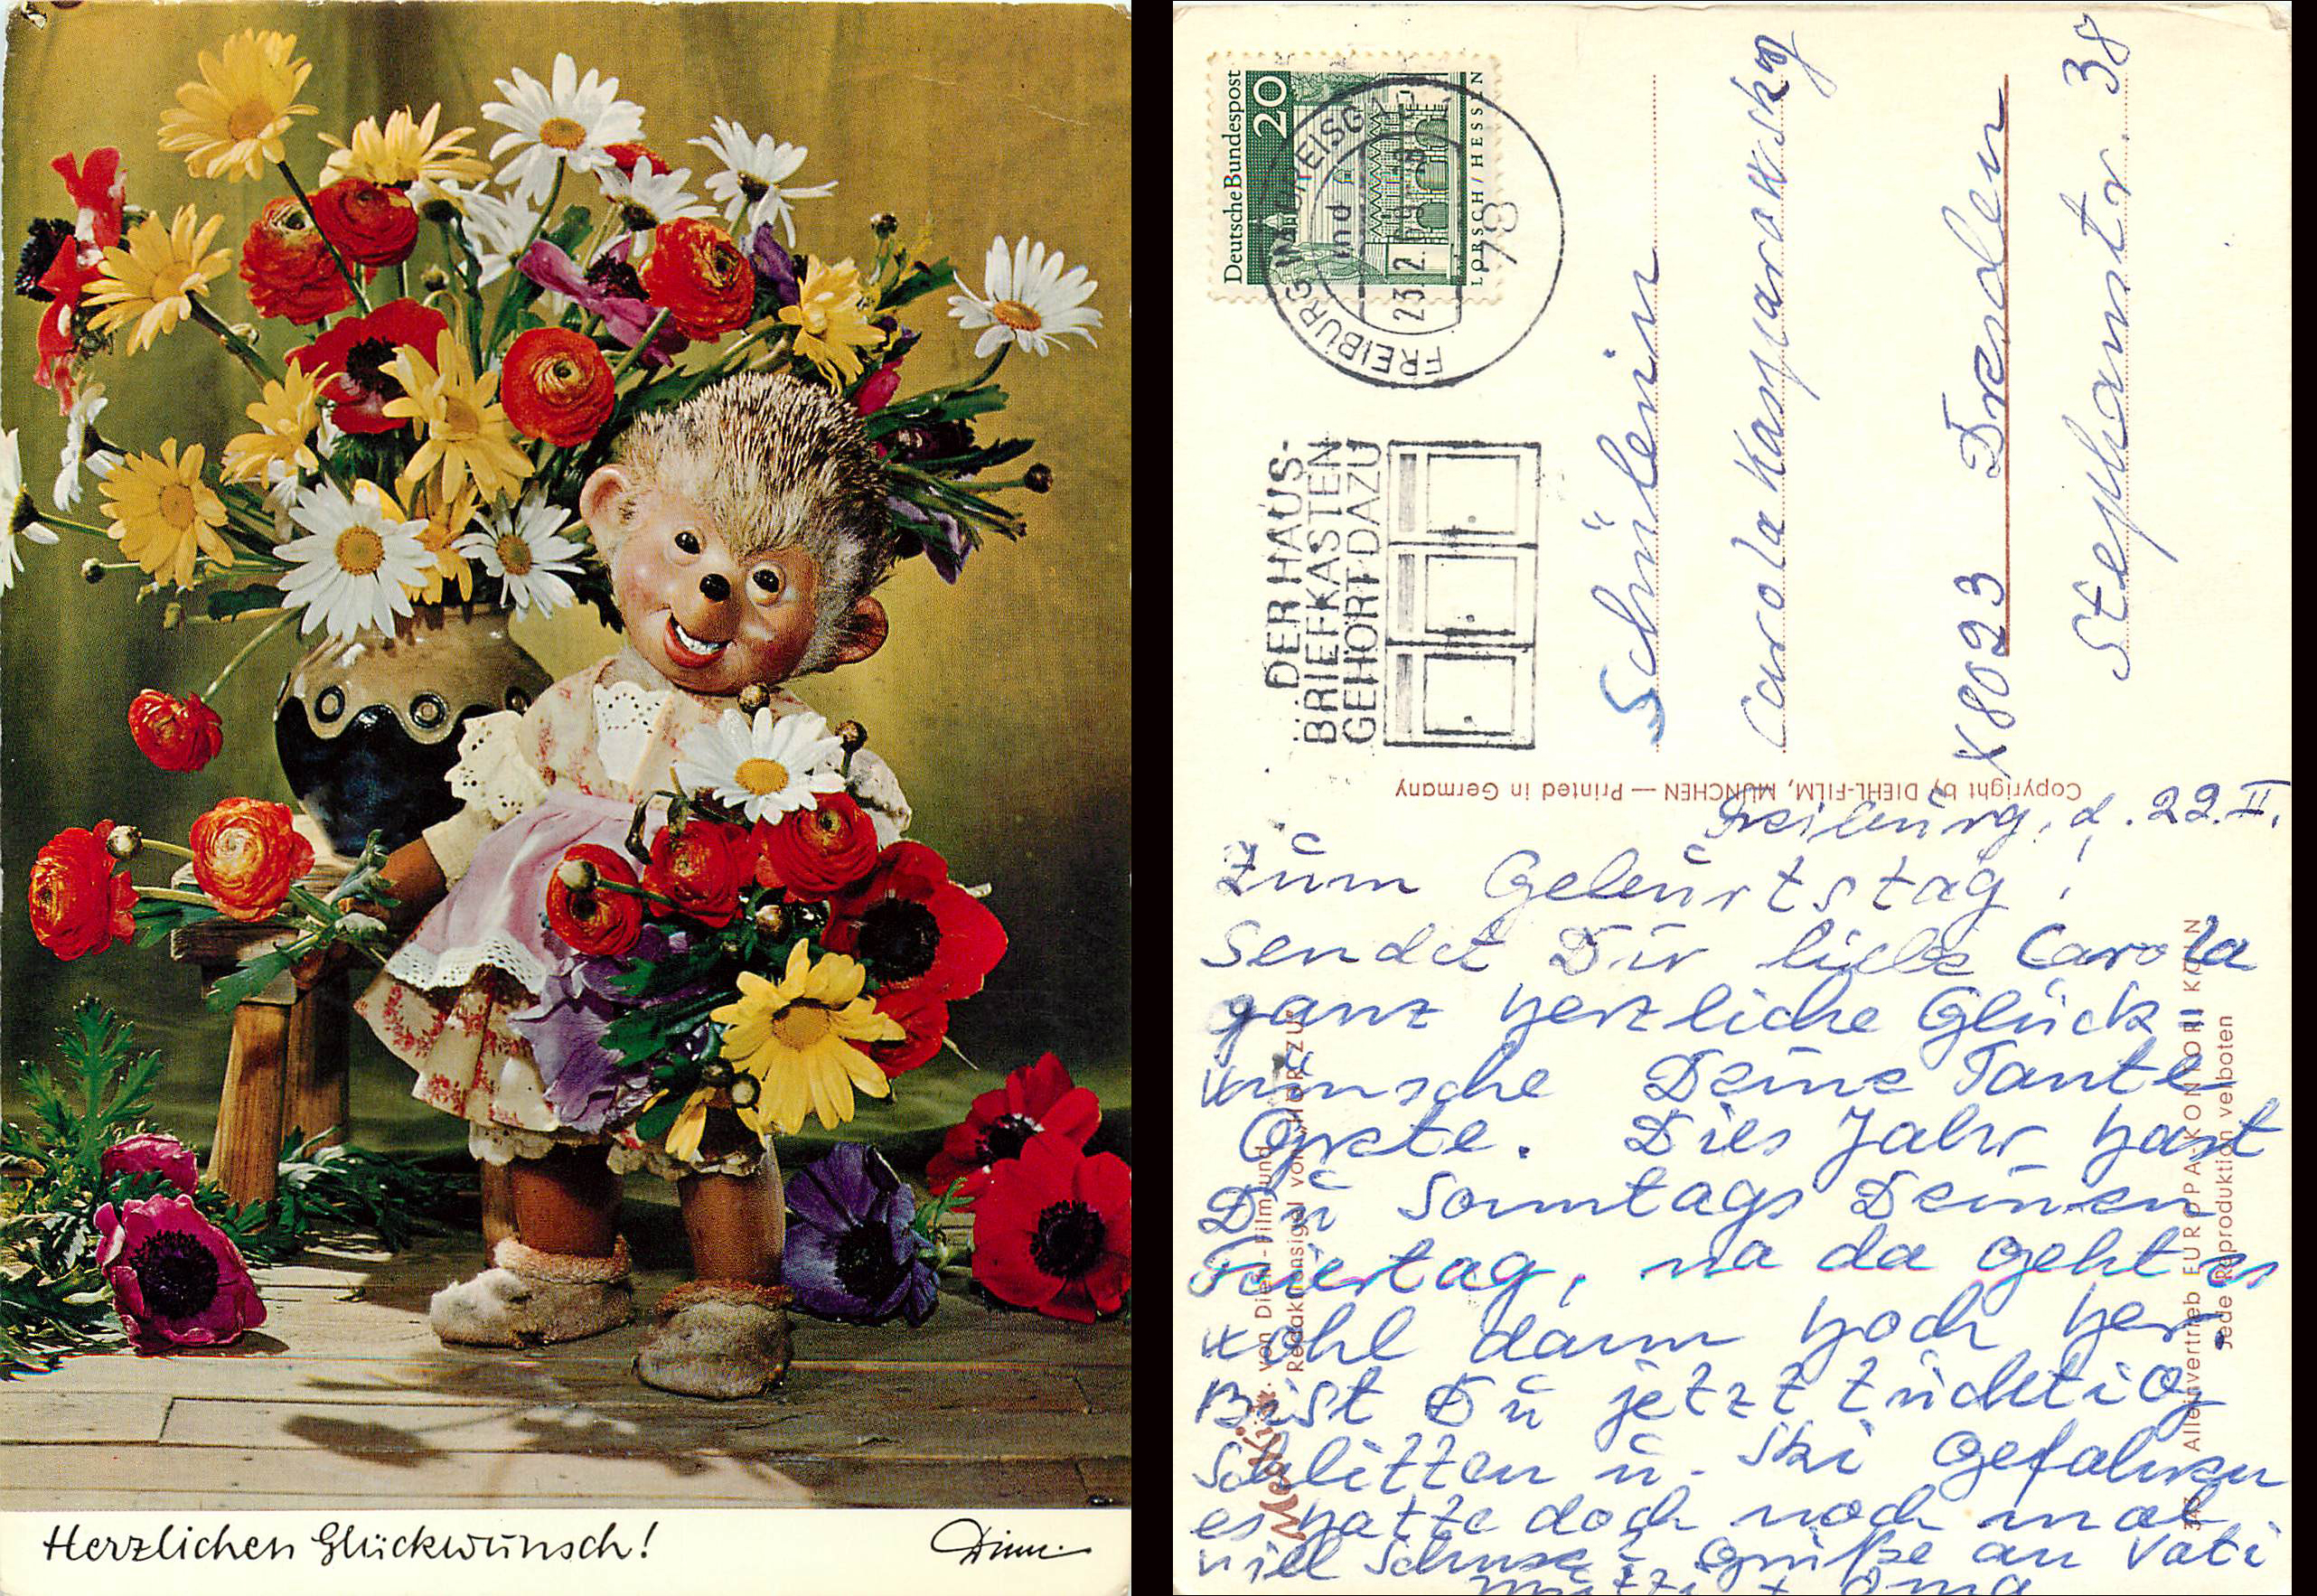 Herzlichen Glückwunsch!
Deutsche Bundespost
20
LORSCH/HESSEN
FREIBURG IM BREISGAU
23.2.
78
DER HAUS-
BRIEFKASTEN
GEHÖRT DAZU
Schülerin
Carola Kasparowsky
X8023 Dresden
Stephanstr. 38
Copyright by DIEHL-FILM, MÜNCHEN — Printed in Germany
Freiburg, d. 22. II.
Zum Geburtstag!
Sendet Dir liebe Carola
ganz herzliche Glück=
wünsche Deine Tante
Grete. Dies Jahr hast
Du Sonntags Deinen
Feiertag, na da geht es
wohl dann hoch her.
Bist Du jetzt tüchtig
Schlitten u. Ski gefahren
es hatte doch noch mal
viel Schnee! Grüße an Vati
Mutti + Oma
Mecki von Diehl-Film und
Redaktionsigel von HÖR ZU
Alleinvertrieb EUROPA-KONTOR KÖLN
Jede Reproduktion verboten